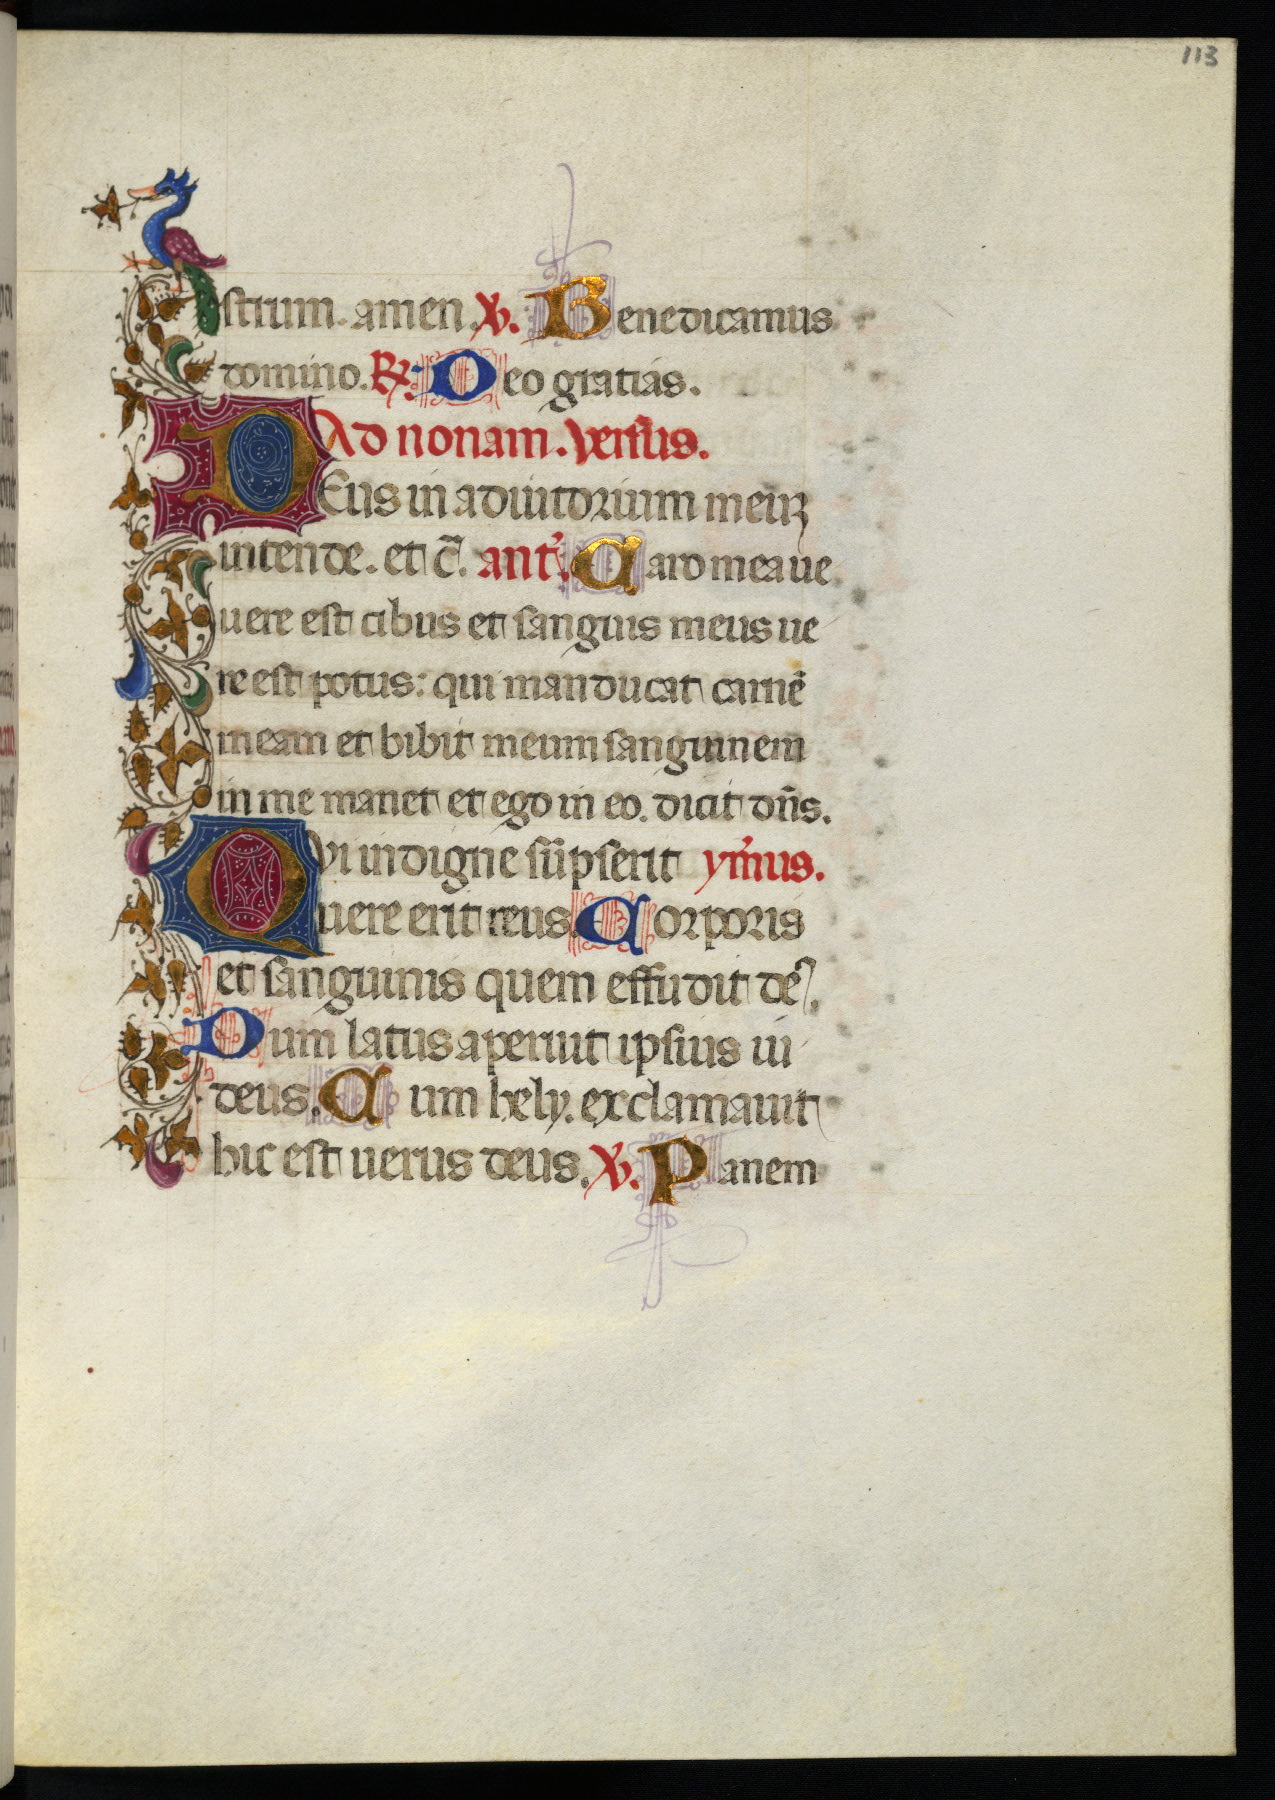 113
strum. amen. V. Benedicamus
domino. R. Deo gratias.
Ad nonam. versus.
DEus in adiutorium meuz
intende. et c̄. ant'. Caro mea ue
uere est cibus et sanguis meus ue
re est potus: qui manducat carnē
meam et bibit meum sanguinem
in me manet et ego in eo. dicit dn̄s.
Qvi indigne sūpserit ym̄us.
uere erit reus. Corporis
et sanguinis quem effudit de
Dum latus aperuit ipsius iu
deus. Cum hely. exclamauit
hic est uerus deus. V. Panem